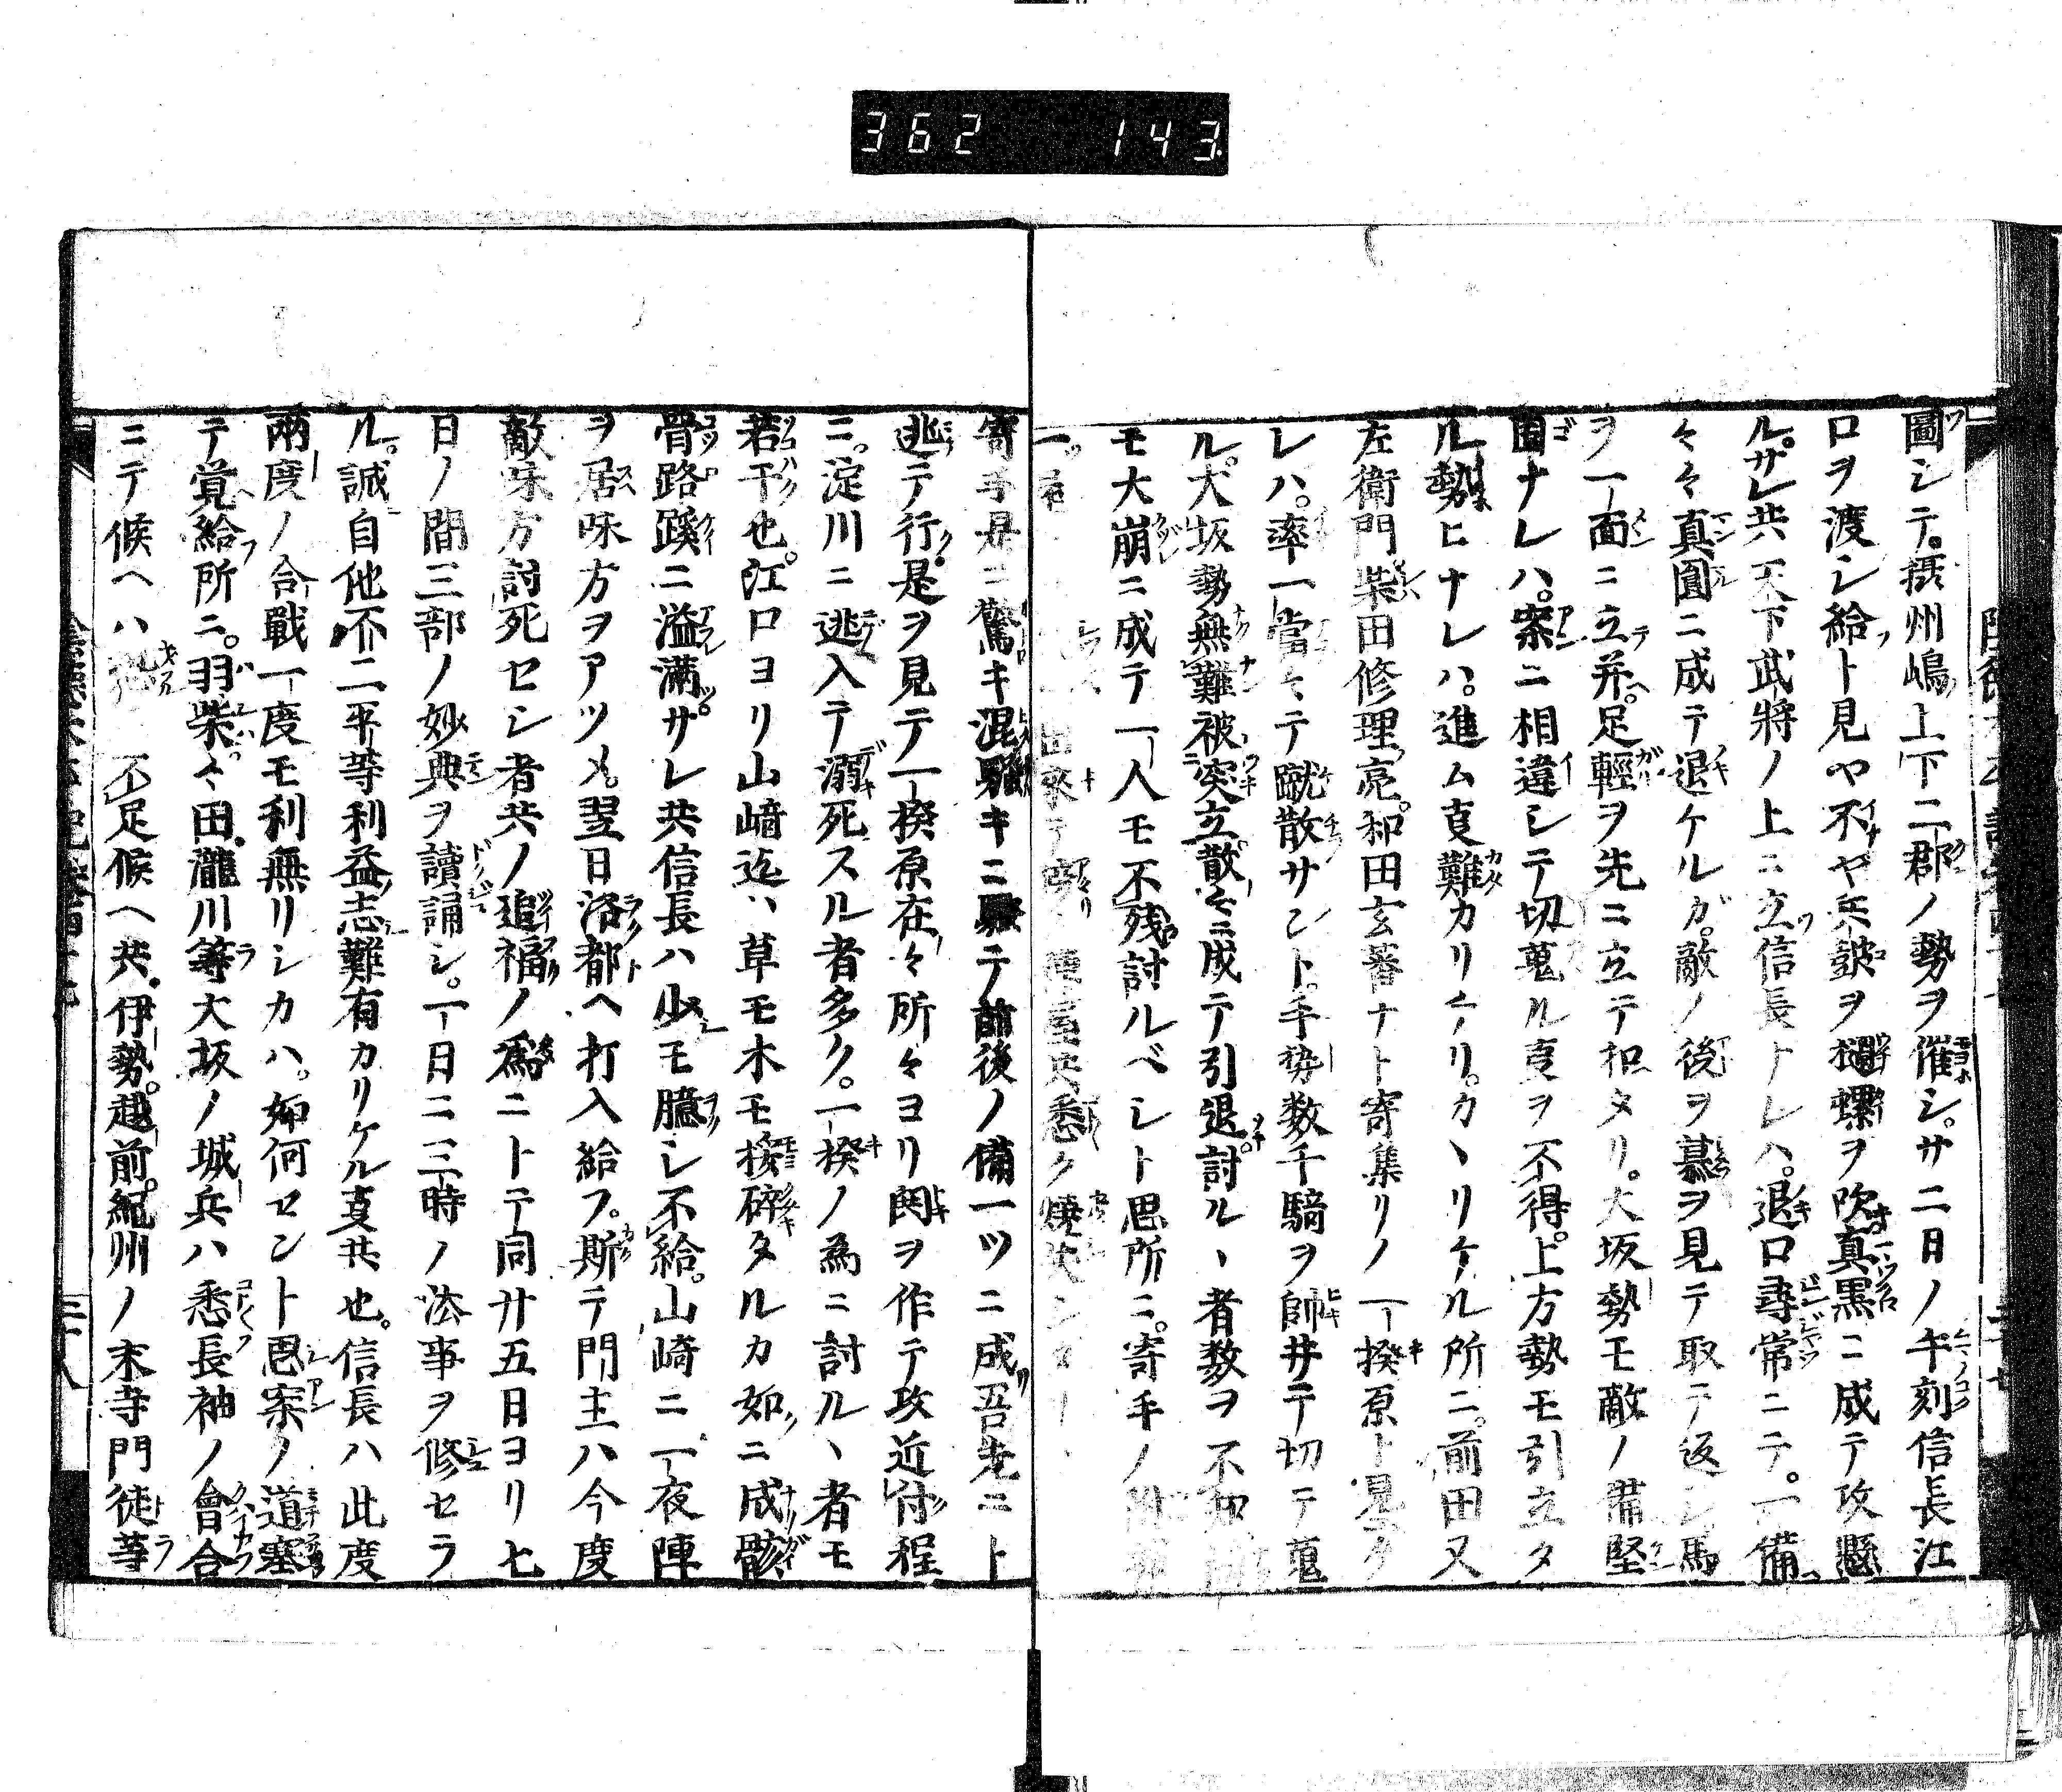 362 143
圖シテ。摂州嶋上下二郡ノ勢ヲ催シ。廿二日ノ午刻信長江
口ヲ渡シ給フト見ヤ不ヤ兵皷ヲ撾螺ヲ吹真黒ニ成テ攻懸
ル。サレ共天下武將ノ上ニ立信長ナレハ。退口尋常ニテ。一備
々々真圓ニ成テ退ケルガ。敵ノ後ヲ慕ヲ見テ取テ返シ馬
ヲ一面ニ立并。足輕ヲ先ニ立テ扣タリ。大坂勢モ敵ノ備堅
固ナレハ。案ニ相違シテ切蒐ル㕝ヲ不得。上方勢モ引立タ
ル勢ヒナレハ。進ム㕝難カリケリ。カヽリケル所ニ。前田又
左衛門柴田修理亮。和田玄蕃ナト寄集リノ一揆原ト見ケ
レハ。率一當々テ蹴散サント。手勢数千騎ヲ帥井テ切テ蒐
ル。大坂勢無難被突立。散々ニ成テ引退討ルヽ者数ヲ不知
モ大崩ニ成テ一人モ不残討ルベシト思所ニ。寄手ノ
出來テ 陣屋共悉ク焼
寄手是ニ驚キ混騒キニ騒テ前後ノ備一ツニ成吾先ニト
逃テ行。是ヲ見テ一揆原在々所々ヨリ閧ヲ作テ攻近付程
ニ。淀川ニ逃入テ溺死スル者多ク。一揆ノ為ニ討ルヽ者モ
若干也。江口ヨリ山﨑迄ハ草モ木モ揉碎タルカ如ニ成骸
骨路蹊ニ溢満。サレ共信長ハ少モ臆シ不給。山崎ニ一夜陣
ヲ居味方ヲアツメ。翌日洛都ヘ打入給フ。斯テ門主ハ今度
敵味方討死セシ者共ノ追福ノ為ニトテ同廿五日ヨリ七
日ノ間三部ノ妙典ヲ讀誦シ。一日ニ三時ノ法事ヲ修セラ
ル。誠自他不二平等利益ノ志難有カリケル㕝共也。信長ハ此度
兩度ノ合戰一度モ利無リシカハ。如何セント思案ノ道塞
テ覚給フ所ニ。羽柴。田。瀧川等大坂ノ城兵ハ悉長袖ノ會合
ニテ候ヘハ 不足候ヘ共。伊勢。越前。紀州ノ末寺門徒等